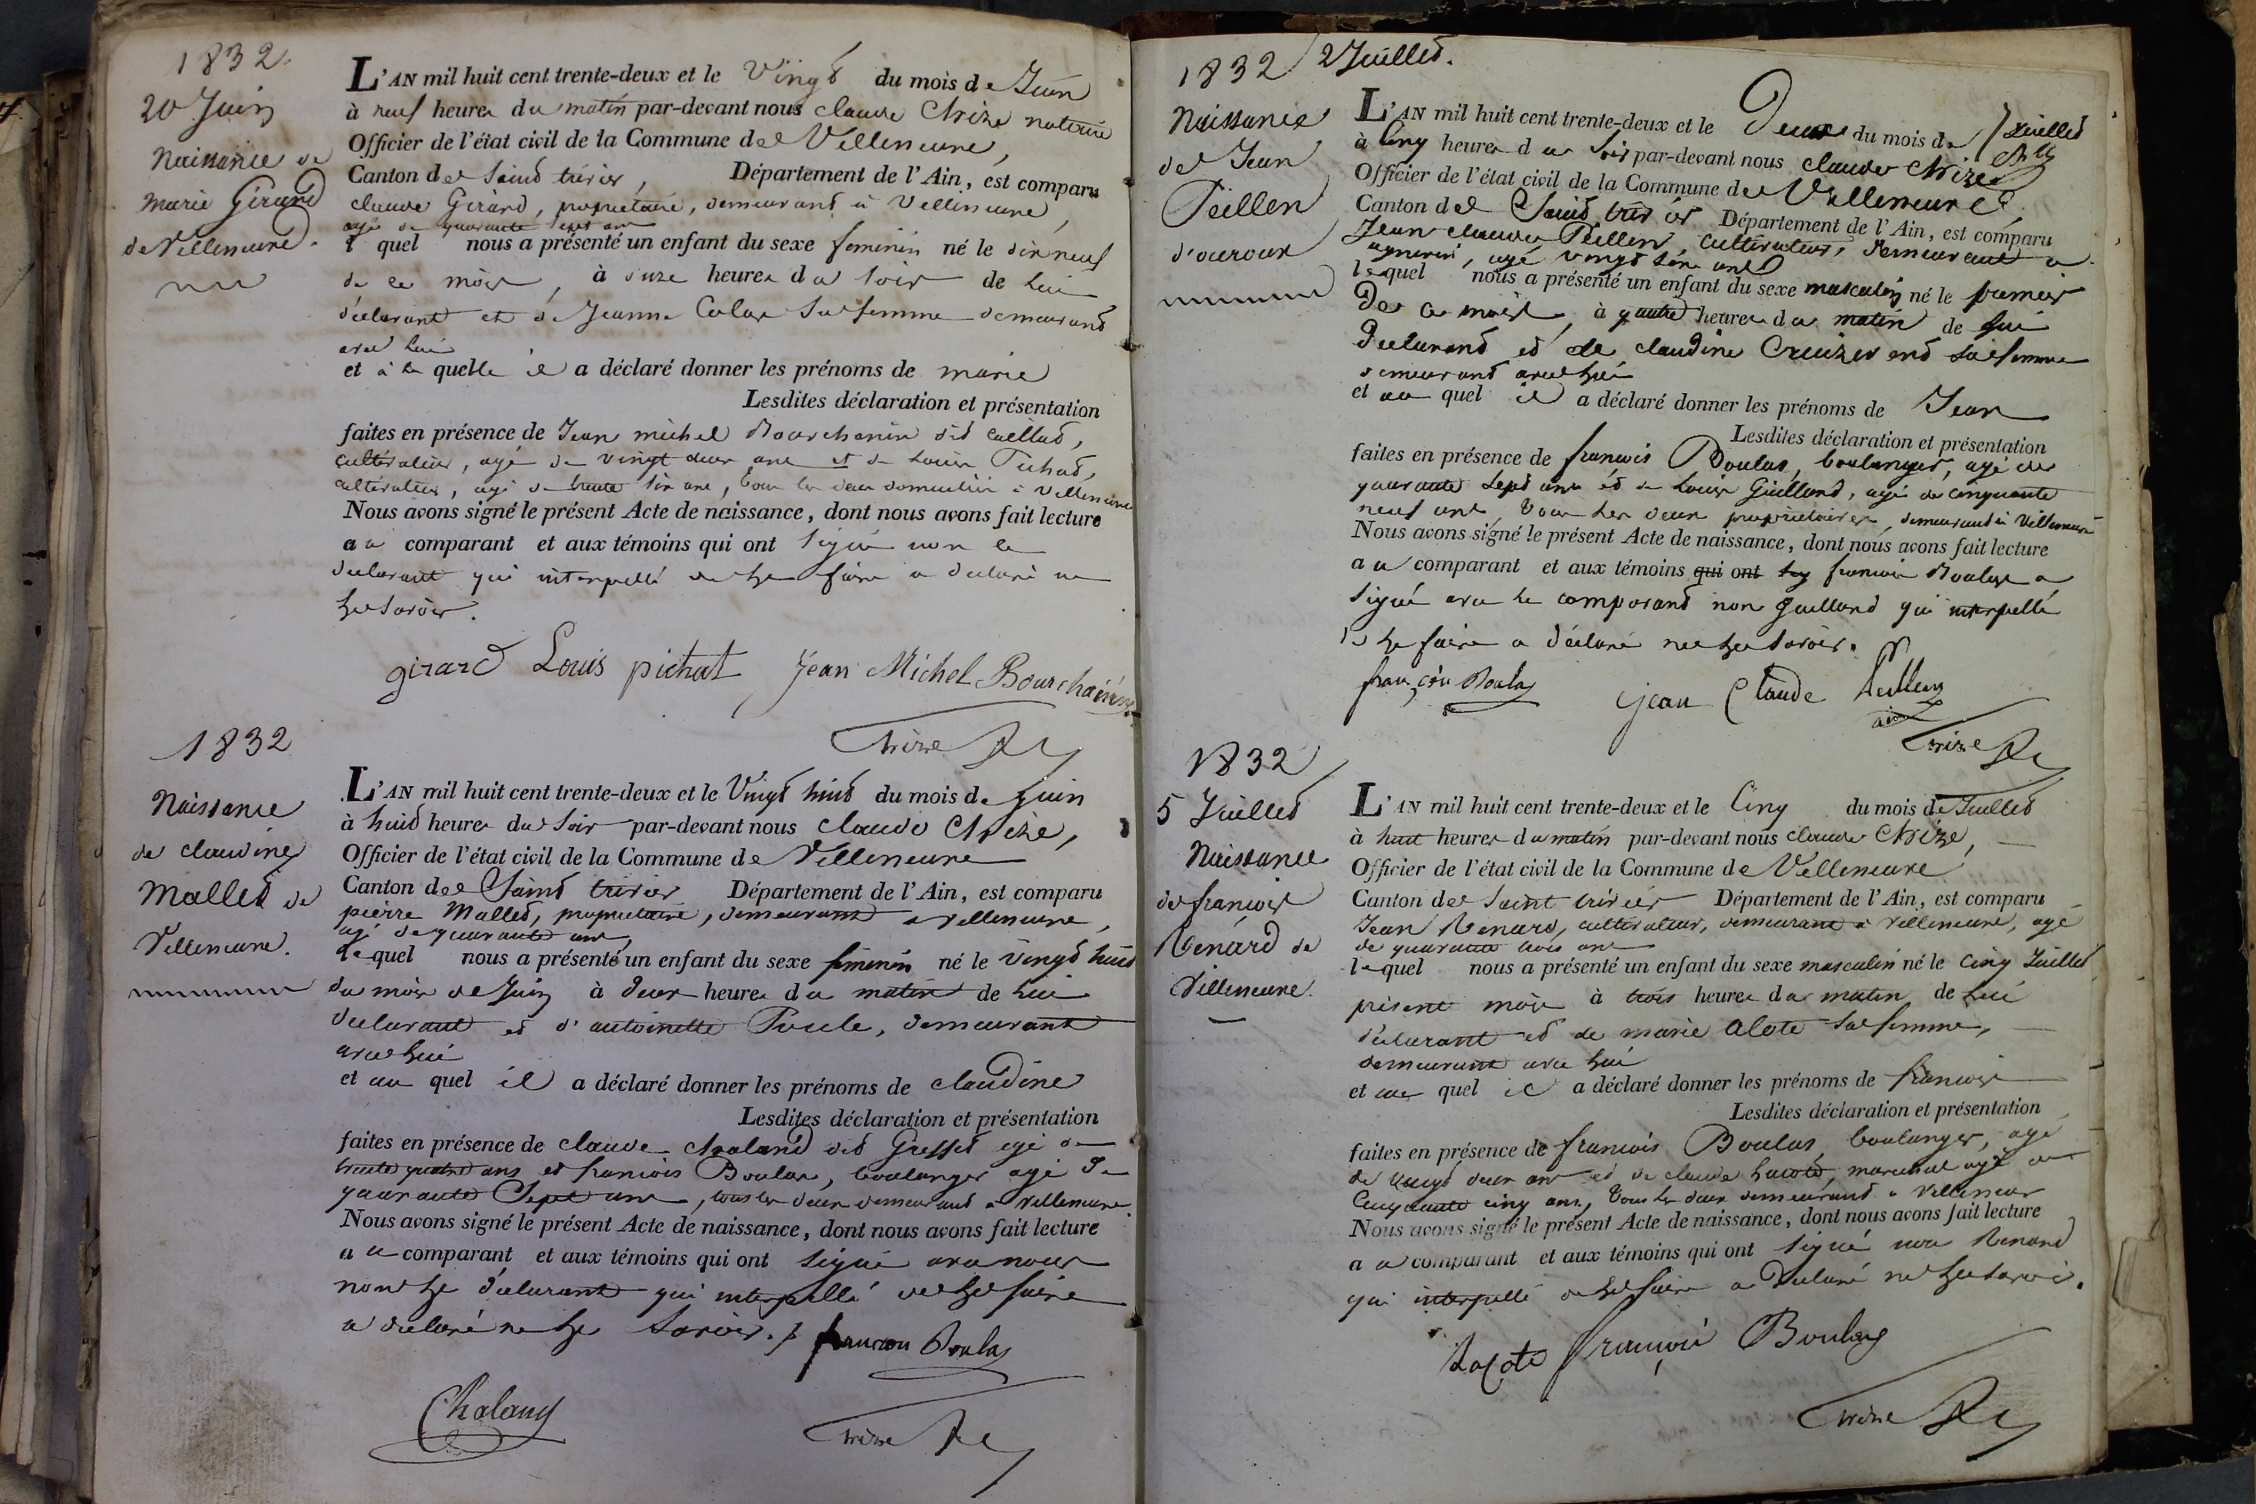 1832.
20 Juin
Naissance de
marie Girard
de Villeneuve.
L'AN mil huit cent trente-deux et le Vingt du mois de Juin
à neuf heures du matin par-devant nous claude Trize notaire
Officier de l'état civil de la Commune de Villeneuve,
Canton de Saint trivier, Département de l'Ain, est comparu
claude Girard, propriétaire, demeurant à Villeneuve,
agé de quarante sept ans
le quel nous a présenté un enfant du sexe feminin né le dix neuf
de ce mois, à onze heures du soir de lui
déclarant et de Jeanne sa femme demeurand
avec lui
et à la quelle il a déclaré donner les prénoms de marie
Lesdites déclaration et présentation
faites en présence de Jean michel Bourchanin dit
cultivateur, agé de vingt deux ans et de Louis Pichat,
cultivateur, agé de trente six ans, tous les deux domiciliés à Villeneuve
Nous avons signé le présent Acte de naissance, dont nous avons fait lecture
au comparant et aux témoins qui ont signé non le
déclarant qui interpellé de le faire a declaré ne
le savoir.
girard Louis pichat Jean Michel Bourchanin
Trize
1832
Naissance
de claudine
Mallet de
Villeneuve.
L'AN mil huit cent trente-deux et le Vingt huit du mois de Juin
à huit heures du soir par-devant nous claude Trize,
Officier de l'état civil de la Commune de Villeneuve
Canton de Saint trivier Département de l'Ain, est comparu
pierre Mallet, propriétaire, demeurant a Villeneuve,
agé de quarante ans,
le quel nous a présenté un enfant du sexe feminin né le vingt huit
du mois de Juin à deux heures du matin de lui
déclarant et d'antoinette demeurant
avec lui
et au quel il a déclaré donner les prénoms de claudine
Lesdites déclaration et présentation
faites en présence de claude chaland dit agé de
trente quatre ans et francois Boulas, boulanger agé de
quarante Sept ans, tous les deux demeurant a Villeneuve.
Nous avons signé le présent Acte de naissance, dont nous avons fait lecture
au comparant et aux témoins qui ont signé avec nous
non le déclarant qui interpellé de le faire
a declaré ne le savoir. françois Boulas
Chaland
Trize
1832 2 Juillet.
Naissance
de Jean
Peillon
L'AN mil huit cent trente-deux et le Deux du mois de Juillet
à Cinq heures du soir par-devant nous claude Trize
Officier de l'état civil de la Commune de Villeneuve
Canton de Saint trivier Département de l'Ain, est comparu
Jean claude Peillon, cultivateur, demeurant a
agé vingt six ans
lequel nous a présenté un enfant du sexe masculin né le premier
de ce mois, à quatre heures du matin de lui
Déclarant et de claudine sa femme
demeurant avec lui
et au quel il a déclaré donner les prénoms de Jean
Lesdites déclaration et présentation
faites en présence de francois Boulas, boulanger, agé de
quarante sept ans et de Louis Guillard, agé de cinquante
neuf ans, tous les deux propriétaires, demeurant à Villeneuve
Nous avons signé le présent Acte de naissance, dont nous avons fait lecture
au comparant et aux témoins qui ont francois Boulas a
signé avec le comparand non guilland qui interpellé
de le faire a déclaré ne le savoir.
françois Boulas Jean Claude Peillon
Trize
1832
5 Juillet
Naissance
de francois
Renard de
Villeneuve.
L'AN mil huit cent trente-deux et le Cinq du mois de Juillet
à huit heures du matin par-devant nous claude Trize,
Officier de l'état civil de la Commune de Villeneuve
Canton de Saint trivier Département de l'Ain, est comparu
Jean Renard, cultivateur, demeurant a Villeneuve, agé
de quarante trois ans
lequel nous a présenté un enfant du sexe masculin né le cinq Juillet
présent mois à trois heures du matin de lui
déclarant et de marie Alote sa femme,
demeurant avec lui
et au quel il a déclaré donner les prénoms de francois
Lesdites déclaration et présentation
faites en présence de francois Boulas, boulanger, agé
de deux ans et de claude Lacote, marechal agé de
Cinquante cinq ans, tous les deux demeurant a Villeneuve
Nous avons signé le présent Acte de naissance, dont nous avons fait lecture
au comparant et aux témoins qui ont signé non Renard
qui interpellé de le faire a declaré ne le savoir.
Lacote françoi Boulas
Trize